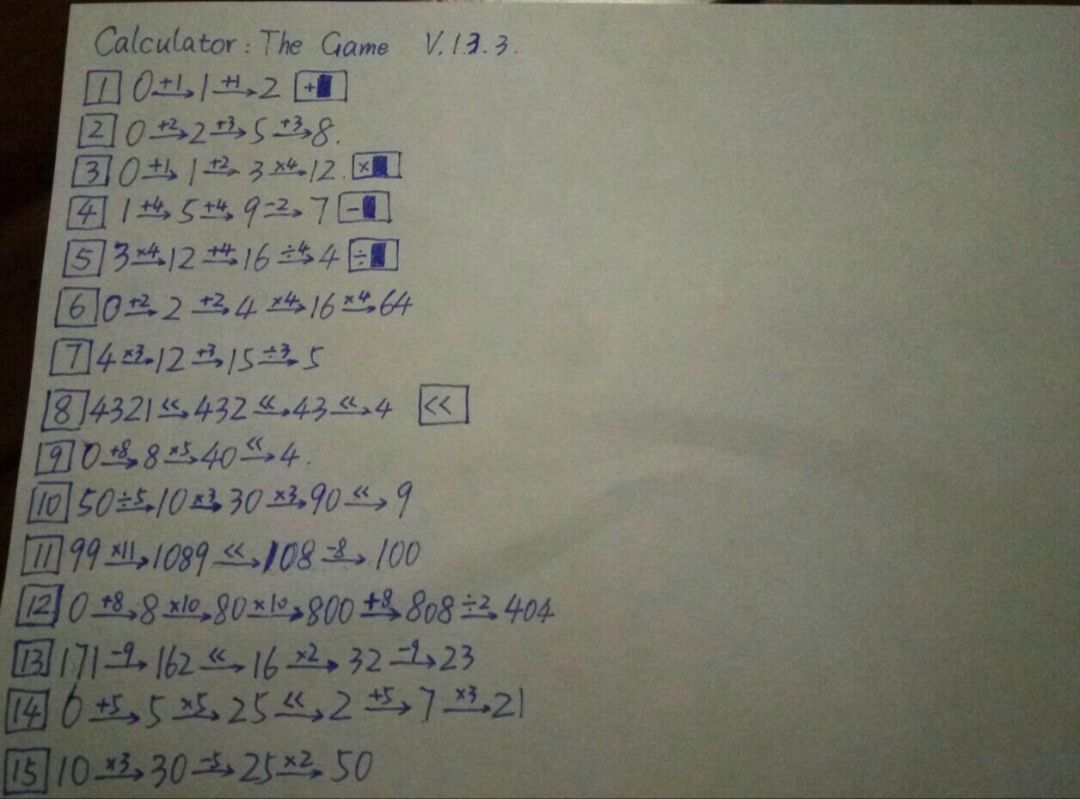 Calculator: The Game V.1.3.3.
1 0 +1→ 1 +1→ 2 +▮
2 0 +2→ 2 +3→ 5 +3→ 8.
3 0 +1→ 1 +2→ 3 ×4→ 12. ×▮
4 1 +4→ 5 +4→ 9 -2→ 7 -▮
5 3 ×4→ 12 +4→ 16 ÷4→ 4 ÷▮
6 0 +2→ 2 +2→ 4 ×4→ 16 ×4→ 64
7 4 ×3→ 12 +3→ 15 ÷3→ 5
8 4321 <<→ 432 <<→ 43 <<→ 4 <<
9 0 +8→ 8 ×5→ 40 <<→ 4.
10 50 ÷5→ 10 ×3→ 30 ×3→ 90 <<→ 9
11 99 ×11→ 1089 <<→ 108 -8→ 100
12 0 +8→ 8 ×10→ 80 ×10→ 800 +8→ 808 ÷2→ 404
13 171 -9→ 162 <<→ 16 ×2→ 32 -9→ 23
14 0 +5→ 5 ×5→ 25 <<→ 2 +5→ 7 ×3→ 21
15 10 ×3→ 30 -5→ 25 ×2→ 50